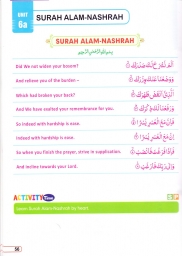 UNIT
6a
SURAH ALAM-NASHRAH
SURAH ALAM-NASHRAH
Did We not widen your bosom? أَلَمْ نَشْرَحْ لَكَ صَدْرَكَ
And relieve you of the burden – وَوَضَعْنَا عَنكَ وِزْرَكَ
Which had broken your back? الَّذِي أَنقَضَ ظَهْرَكَ
And We have exalted your remembrance for you. وَرَفَعْنَا لَكَ ذِكْرَكَ
So indeed with hardship is ease. فَإِنَّ مَعَ الْعُسْرِ يُسْرًا
Indeed with hardship is ease. إِنَّ مَعَ الْعُسْرِ يُسْرًا
So when you finish the prayer, strive in supplication. فَإِذَا فَرَغْتَ فَانصَبْ
And incline towards your Lord. وَإِلَىٰ رَبِّكَ فَارْغَب
ACTIVITY Time
Learn Surah Alam-Nashrah by heart.
56